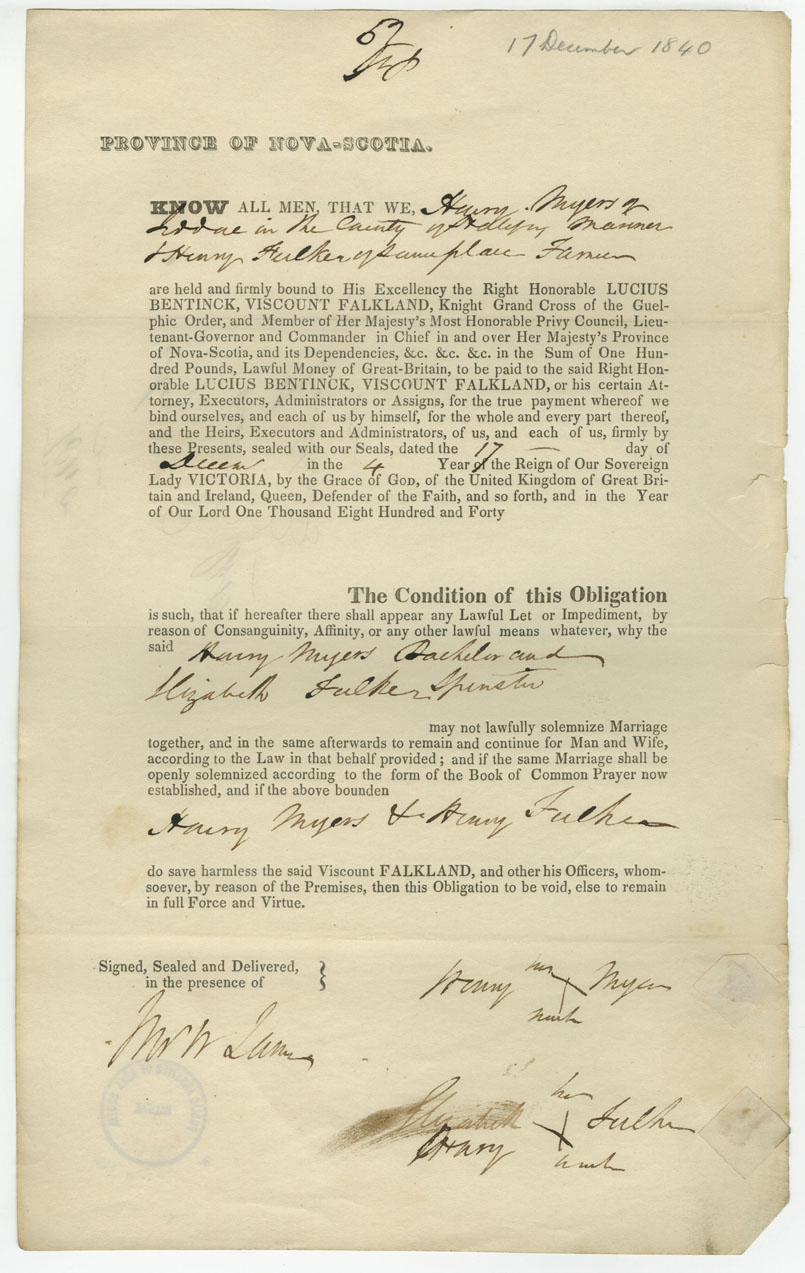 57
17 December 1840
PROVINCE OF NOVA-SCOTIA.
KNOW ALL MEN, THAT WE, Henry Myers of
Jeddore in the County of Halifax Mariner
& Henry Fulker of same place Farmer
are held and firmly bound to His Excellency the Right Honorable LUCIUS
BENTINCK, VISCOUNT FALKLAND, Knight Grand Cross of the Guel-
phic Order, and Member of Her Majesty's Most Honorable Privy Council, Lieu-
tenant-Governor and Commander in Chief in and over Her Majesty's Province
of Nova-Scotia, and its Dependencies, &c. &c. &c. in the Sum of One Hun-
dred Pounds, Lawful Money of Great-Britain, to be paid to the said Right Hon-
orable LUCIUS BENTINCK, VISCOUNT FALKLAND, or his certain At-
torney, Executors, Administrators or Assigns, for the true payment whereof we
bind ourselves, and each of us by himself, for the whole and every part thereof,
and the Heirs, Executors and Administrators, of us, and each of us, firmly by
these Presents, sealed with our Seals, dated the 17 — day of
Decem in the 4 Year of the Reign of Our Sovereign
Lady VICTORIA, by the Grace of GOD, of the United Kingdom of Great Bri-
tain and Ireland, Queen, Defender of the Faith, and so forth, and in the Year
of Our Lord One Thousand Eight Hundred and Forty
The Condition of this Obligation
is such, that if hereafter there shall appear any Lawful Let or Impediment, by
reason of Consanguinity, Affinity, or any other lawful means whatever, why the
said Henry Myers Bachelor and
Elizabeth Fulker Spinster
may not lawfully solemnize Marriage
together, and in the same afterwards to remain and continue for Man and Wife,
according to the Law in that behalf provided; and if the same Marriage shall be
openly solemnized according to the form of the Book of Common Prayer now
established, and if the above bounden
Henry Myers & Henry Fulker
do save harmless the said Viscount FALKLAND, and other his Officers, whom-
soever, by reason of the Premises, then this Obligation to be void, else to remain
in full Force and Virtue.
Signed, Sealed and Delivered,
in the presence of
Henry his Myers
mark
her
Elizabeth Fulker
Henry
mark